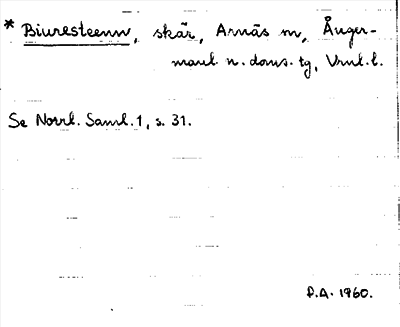 * Biuresteenn, skär, Arnäs sn, Ånger-
manl. n. doms. tg, Vnl. l.
Se Norrl. Saml. 1, s. 31.
P.A. 1960.